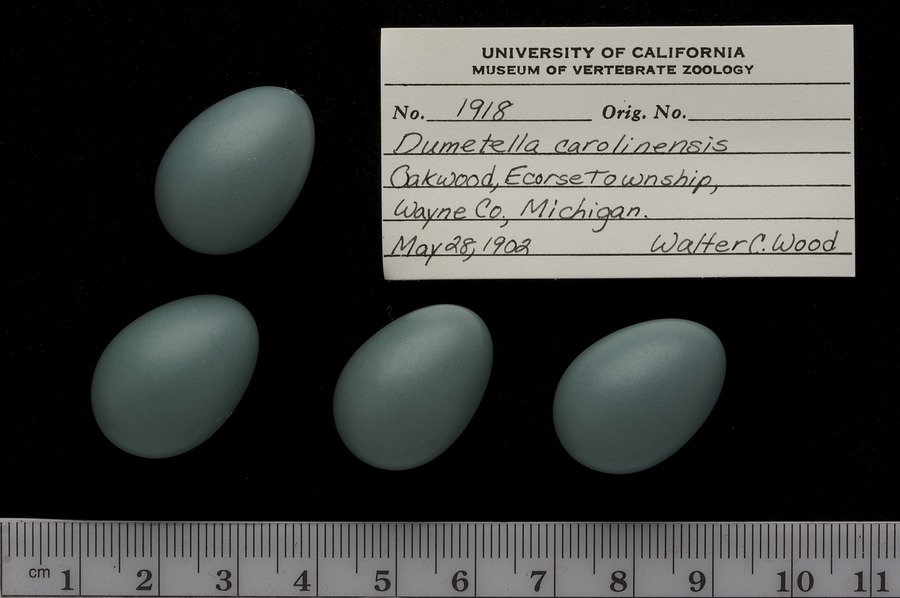 UNIVERSITY OF CALIFORNIA
MUSEUM OF VERTEBRATE ZOOLOGY
No. 1918 Orig. No.
Dumetella carolinensis
Oakwood, Ecorse Township,
Wayne Co., Michigan.
May 28, 1902 Walter C. Wood
cm 1 2 3 4 5 6 7 8 9 10 11